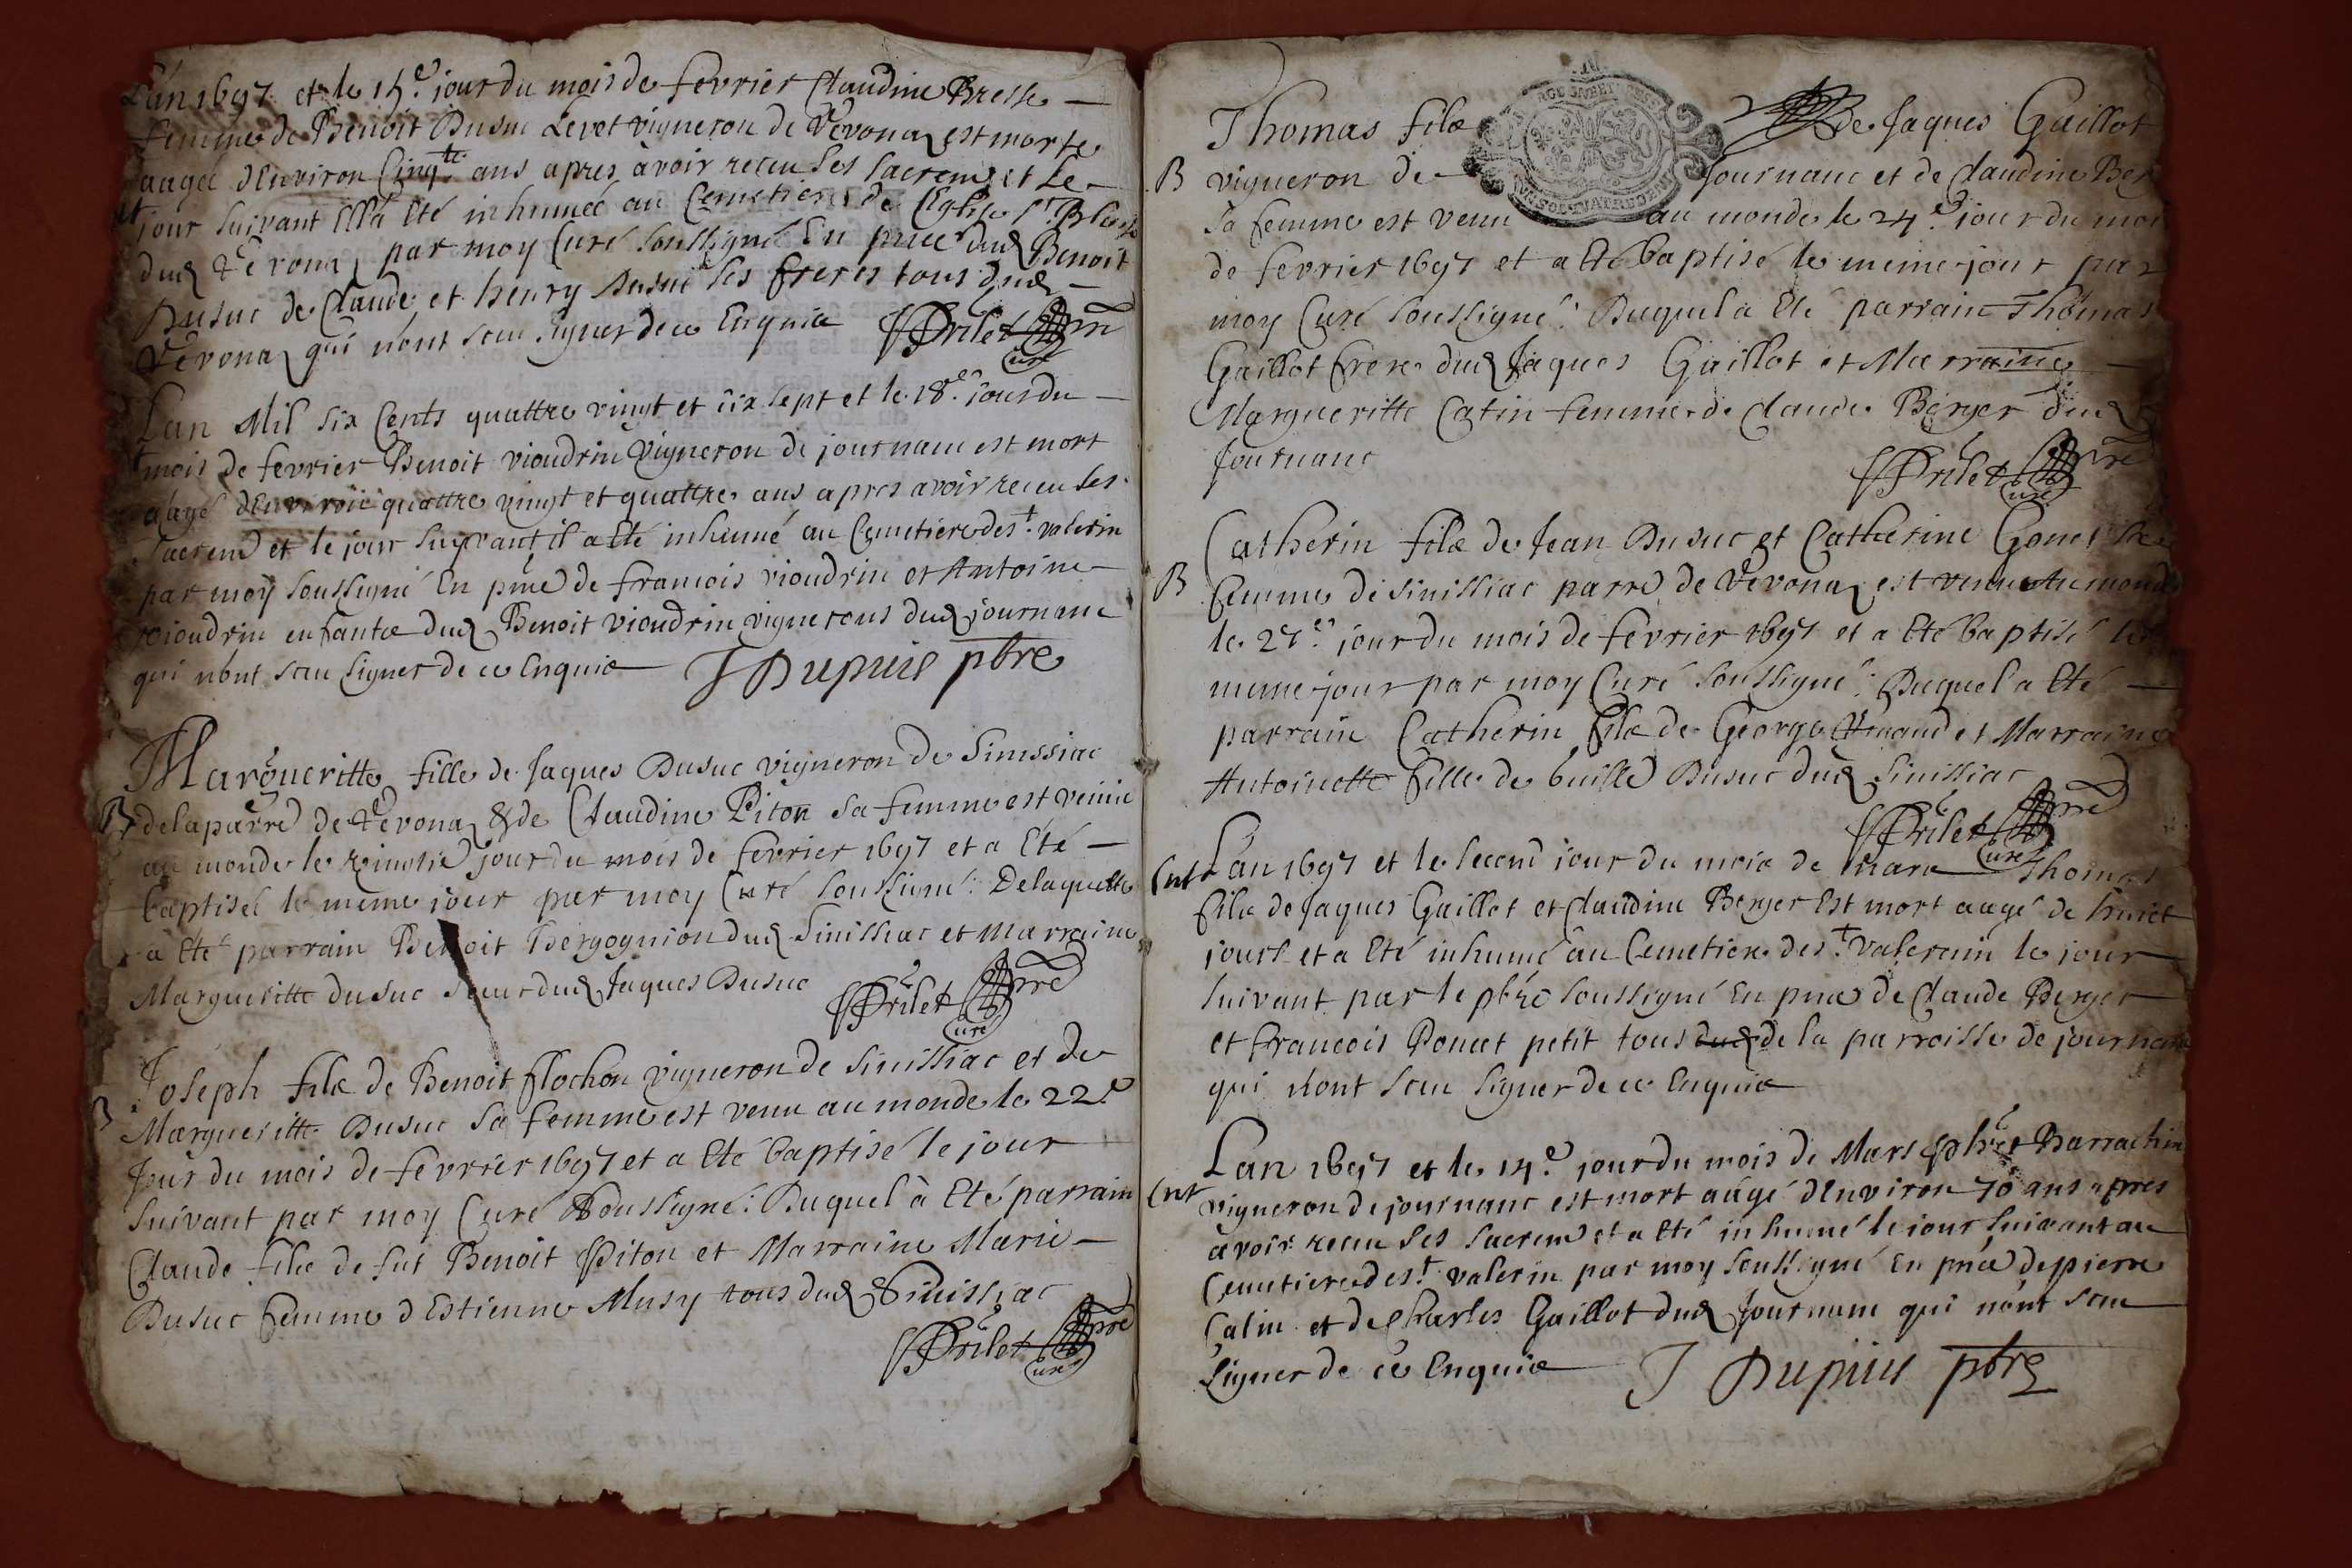 Lan 1697 et le 15.e jour du mois de fevrier Claudine Bresse
femme de Benoit Dusuc Levet vigneron de Vevona est morte
aagée denviron Cinqte ans apres àvoir receu ses sacremt et le
jour suivant Ella Eté inhumée au Cemetiere de l'Eglise St Blaise
dud Vevona, par moy Curé soussigné En pnce dud Benoit
Dusuc de Claude et henry Dusuc ses freres tous dud
Vevona, qui nont sceu signer de ce Enquis Prilet pre
Curé
Lan Mil six Cents quattre vingt et dix sept et le 18.e jour du
mois de fevrier Benoit vioudrin Vigneron de journanc est mort
aagé denviron quattre vingt et quattre ans apres avoir receu ses
sacremt et le jour suyvant il a Eté inhumé au Cemetiere de st. valerin
par moy soussigné En pnce de francois vioudrin et Antoine
vioudrin enfants dud Benoit vioudrin vignerons dud journanc
qui nont sceu signer de ce Enquis J Dupuis pbre
Margueritte fille de Jaques Dusuc vigneron de Sinissiac
B de la parre de Vevona & de Claudine Piton sa femme est venüe
au monde le jour du mois de fevrier 1697 et a Eté
baptiseé le meme jour par moy Curé soussigné: Delaquelle
à Eté parrain Benoit Bergognion dud Sinissiac et marraine
Margueritte dusuc soeur dud Jaques Dusuc Prilet pre
Curé
Joseph fils de Benoit flochon vigneron de Sinissiac et de
B Margueritte Dusuc sa femme est venu au monde le 22.e
Jour du mois de fevrier 1697 et a Eté baptisé le jour
suivant par moy Curé soussigné: Duquel à Eté parrain
Claude fils de fut Benoit Piton et Marraine Marie
Dusuc femme d Estienne Musy tous dud Sinissiac
Prilet pre
Curé
Thomas fils de Jaques Gaillot
B vigneron de Journanc et de Claudine Ber
sa femme est venu au monde le 24.e jour du moi
de fevrier 1697 et a Eté baptisé le meme jour par
moy Curé soussigné: Duquel a Eté parrain Thomas
Gaillot frere dud Jaques Gaillot et Marraine
Margueritte Catin femme de Claude Berger dud
Journanc
Prilet pre
Curé
Catherin fils de Jean Dusuc et Catherine Gonet sa
B femme de Sinissiac parre de Vevona est venu Au monde
le jour du mois de fevrier 1697 et a Eté baptisé le
meme jour par moy Curé soussigné: Duquel a Eté
parrain Catherin fils de George et Marraine
Antoinette fille de Dusuc dud Sinissiac
Prilet pre
Curé
Ent Lan 1697 et le second jour du mois de mars Thomas
fils de Jaques Gaillot et Claudine Berger Est mort aagé de huict
jours et a Eté inhumé au Cemetiere de st. Valerain le jour
suivant par le pbre soussigné En pnce de Claude Berger
et francois Poncet petit tous dud de la parroisse de journanc
qui nont sceu signer de ce Enquis
Lan 1697 et le 14.e jour du mois de Mars Barrachin
Ent vigneron de journanc est mort aagé denviron 70 ans apres
àvoir receu ses sacremt et a Eté inhumé le jour suivant au
Cemetiere de st. valerin par moy soussigné En pnce de pierre
Catin et de Charles Gaillot dud Journanc qui nont sceu
signer de ce Enquis J Dupuis pbre